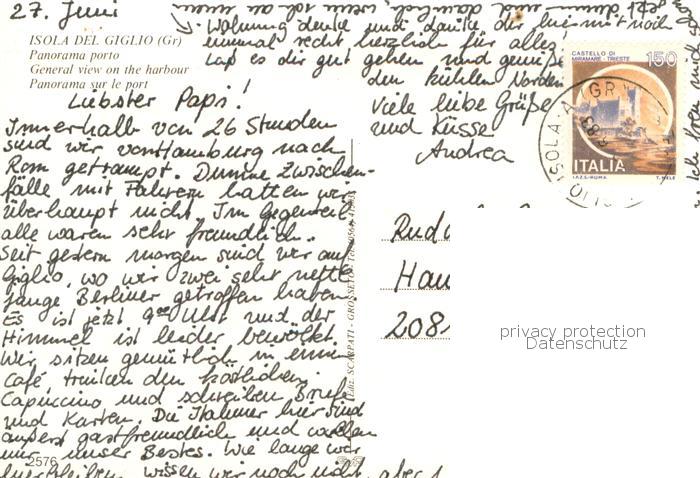 27. Juni
ISOLA DEL GIGLIO (Gr)
Panorama porto
General view on the harbour
Panorama sur le port
Liebster Papi!
Innerhalb von 26 Stunden
sind wir von Hamburg nach
Rom getrampt. Dumme Zwischen-
fälle mit Fahrern hatten wir
überhaupt nicht. Im Gegenteil
alle waren sehr freundlich.
Seit gestern morgen sind wir auf
Giglio, wo wir zwei sehr nette
junge Berliner getroffen haben.
Es ist jetzt 9 Uhr und der
Himmel ist leider bewölkt.
Wir sitzen gemütlich in einem
Café, trinken den köstlichen
Capuccino und schreiben Briefe
und Karten. Die Italiener hier sind
äußerst gastfreundlich und wollen
nur unser Bestes. Wie lange wir
hierbleiben, wissen wir noch nicht, aber
2576
Wohnung denke und danke dir hiermit noch
einmal recht herzlich für alles!
Laß es dir gut gehen und genieße
den kühlen Norden
Viele liebe Grüße
und Küsse
Andrea
CASTELLO DI
MIRAMARE - TRIESTE
150
ITALIA
I.P.Z.S. - ROMA
ISOLA
83
SCARPATI - GROSSETO
Rud
Ha
208
privacy protection
Datenschutz